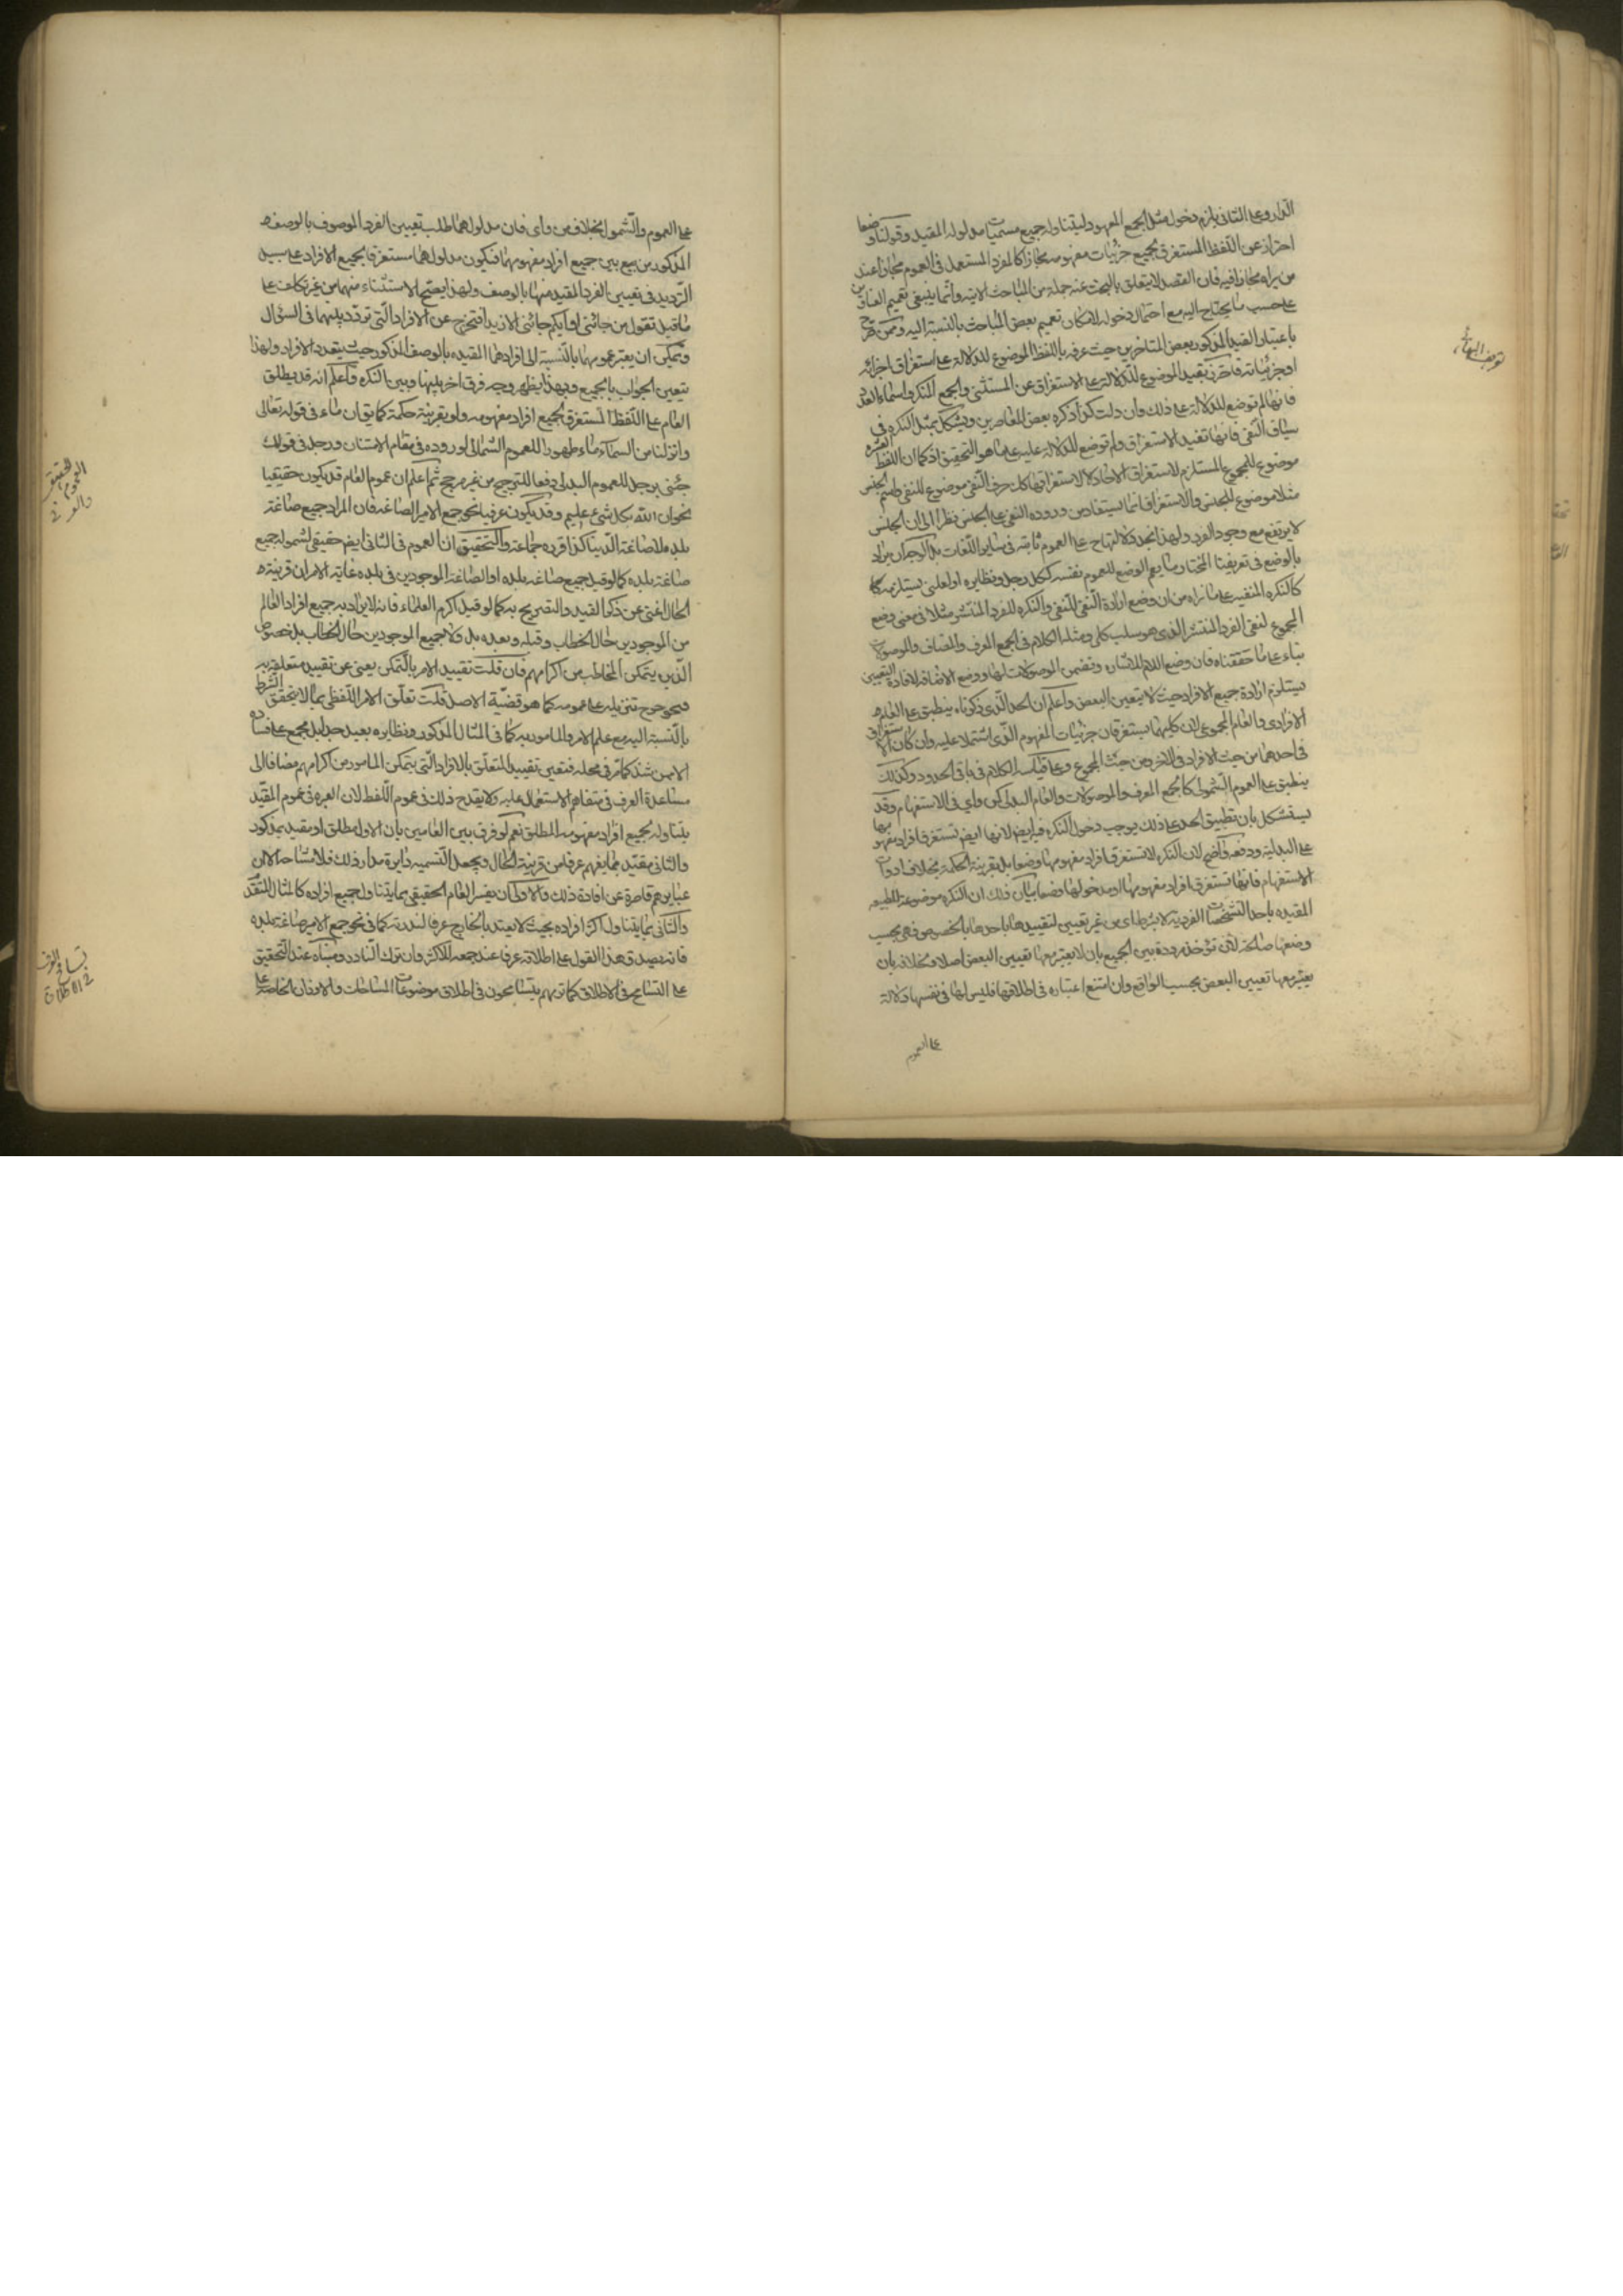 الدار وعلى الثاني يلزم دخول مثل الجمع المعهود ليتناوله جميع مسميات مدلوله المقيد وقولنا وضعا
احتراز عن اللفظ المستغرق لجميع جزئيات مفهومه مجازا كالمفرد المستعمل في العموم مجازا عند
من يراه مجازا فيه فان القصد لا يتعلق بالبحث عنه جملة من المباحث الاتية وانما ينبغي تعميم العنوان
على حسب ما يحتاج اليه مع احتمال دخوله لامكان تعميم بعض المباحث بالنسبة اليه وممن صرح
باعتبار القيد المذكور بعض المتاخرين حيث عرفه باللفظ الموضوع للدلالة على استغراق اجزائه
او جزئياته فاحترز بتقييد الموضوع للدلالة على الاستغراق عن المثنى والجمع المنكر واسماء العدد
فانها لم توضع للدلالة على ذلك وان دلت كذا ذكره بعض المعاصرين ويشكل بمثل النكرة في
سياق النفي فانها تفيد الاستغراق ولم توضع للدلالة عليه على ما هو التحقيق اذ كما ان اللفظ العشرة
موضوع للمجموع المستلزم لاستغراق الاحاد لا لاستغراقها كك حرف النفي موضوع للنفي واسم الجنس
مثلا موضوع للجنس والاستغراق انما يستفاد من ورود النفي على الجنس نظرا الى ان الجنس
لا يرتفع مع وجود الفرد ولهذا نجد دلالتها ح على العموم ثابتة في ساير اللغات بالوجدان يراد
بالوضع في تعريفنا المختار ما يعم الوضع للعموم نفسه ككل رجل ونظايره او لمعنى يستلزمه كا
كالنكرة المنفية على ما نراه من ان وضع اداة النفي للنفي والنكرة للفرد المنتشر مثلا في معنى وضع
المجموع لنفي الفرد المنتشر الذي هو سلب كلي ومثله الكلام في الجمع المعرف والمضاف والموصولات
بناء على ما حققناه فان وضع اللام للاشارة وتضمن الموصولات لها ووضع الاضافة لافادة التعيين
يستلزم ارادة جميع الافراد حيث لا يتعين البعض واعلم ان الحد الذي ذكرناه ينطبق على العام
الافرادي والعام المجموعي لان كليهما يستغرقان جزئيات المفهوم الذي اشتملا عليه وان كان الاستغراق
في احدهما من حيث الافراد وفي الاخر من حيث المجموع وعلى قياسه الكلام في باقي الحدود وكذلك
ينطبق على العموم الشمولي كالجمع المعرف والموصولات والعام البدلي كمن واي في الاستفهام وقد
يستشكل بان تطبيق الحد على ذلك يوجب دخول النكرة فيه ايضا لانها ايضا تستغرق افراد مفهومها
على البدلية ودفعه واضح لان النكرة لا تستغرق افراد مفهومها وضعا بل بقرينة الحكمة بخلاف ادوات
الاستفهام فانها تستغرق افراد مفهومها او مدخولها وضعا بيان ذلك ان النكرة موضوعة للطبيعة
المقيدة باحد التشخصات الفردية لا بشرط اي من غير تعيين لتقييدها باحدها بالخصوص فهي بحسب
وضعها صالحة لان تؤخذ مرددة بين الجميع بان لا يعتبر معها تعيين البعض اصلا وبخلافه بان
يعتبر معها تعيين البعض بحسب الواقع وان امتنع اعتباره في اطلاقها فليس لها في نفسها دلالة
على العموم
تعريف البهائي
على العموم والشمول بخلاف من واي فان مدلولهما طلب تعيين الفرد الموصوف بالوصف
المذكور من بين جميع افراد مفهومهما فيكون مدلولهما مستغرقا لجميع الافراد على سبيل
الترديد في تعيين الفرد المقيد منها بالوصف ولهذا يصح الاستثناء منهما من غير تكلف على
ما قيل تقول من جائني او ايكم جائني الا زيدا فتخرج عن الافراد التي تردد بينها في السؤال
ويمكن ان يعتبر عمومهما بالنسبة الى افرادهما المقيدة بالوصف المذكور حيث يتعدد الافراد ولهذا
يتعين الجواب بالجميع وبهذا يظهر وجه فرق اخر بينها وبين النكرة واعلم انه قد يطلق
العام على اللفظ المستغرق لجميع افراد مفهومه ولو بقرينة حكمة كما يق ان ماء في قوله تعالى
وانزلنا من السماء ماء طهورا للعموم الشمولي لوروده في مقام الامتنان ورجل في قولك
جئني برجل للعموم البدلي دفعا للترجيح من غير مرجح ثم اعلم ان عموم العام قد يكون حقيقيا
نحو ان الله بكل شئ عليم وقد يكون عرفيا نحو جمع الامير الصاغة فان المراد جميع صاغة
بلده لا صاغة الدنيا كذا قرره جماعة والتحقيق ان العموم في الثاني ايضا حقيقي لشموله جميع
صاغة بلده كما لو قيل جميع صاغة بلده او الصاغة الموجودين في بلده غاية الامر ان قرينة
الحال اغنى عن ذكر القيد والتصريح به كما لو قيل اكرم العلماء فانه لا يراد به جميع افراد العالم
من الموجودين حال الخطاب وقبله وبعده بل ولا جميع الموجودين حال الخطاب بل خصوص
الذين يتمكن المخاطب من اكرامهم فان قلت تقييد الامر بالتمكن يغني عن تقييد متعلقه به
فيجوز ح تنزيله على عمومه كما هو قضية الاصل قلت تعلق الامر اللفظي بما لا يتحقق الشرط
بالنسبة اليه مع علم الامر والمامور به كما في المثال المذكور ونظايره بعيد جدا بل مجمع على فساده
الا من شذ كما مر في محله فتعين تقييد المتعلق بالافراد التي يتمكن المامور من اكرامهم مضافا الى
مساعدة العرف في متفاهم الاستعمال عليه ولا يقدح ذلك في عموم اللفظ لان العبرة في عموم المقيد
بتناوله لجميع افراد مفهومه المطلق نعم لو فرق بين العامين بان الاول مطلق او مقيد بمذكور
والثاني مقيد بما يفهم عرفا من قرينة الحال ويجعل التسمية دايرة مدار ذلك فلا مشاحة الا ان
عبايرهم قاصرة عن افادة ذلك والاولى ان يفسر العام الحقيقي بما يتناول جميع افراده كالمثال المتقدم
والثاني بما يتناول اكثر افراده بحيث لا يعتد بالخارج عرفا لندرته كما في نحو جمع الامير صاغة بلده
فانه يصدق هذا القول على اطلاقه عرفا عند جمعه للاكثر وان ترك النادر ومبناه عند التحقيق
على التسامح في الاطلاق كما تريهم يتسامحون في اطلاق موضوعات المساحات والاوزان الخاصة على
الحقيقي
العموم
والعرفي
تسامح العرف
في الاطلاق